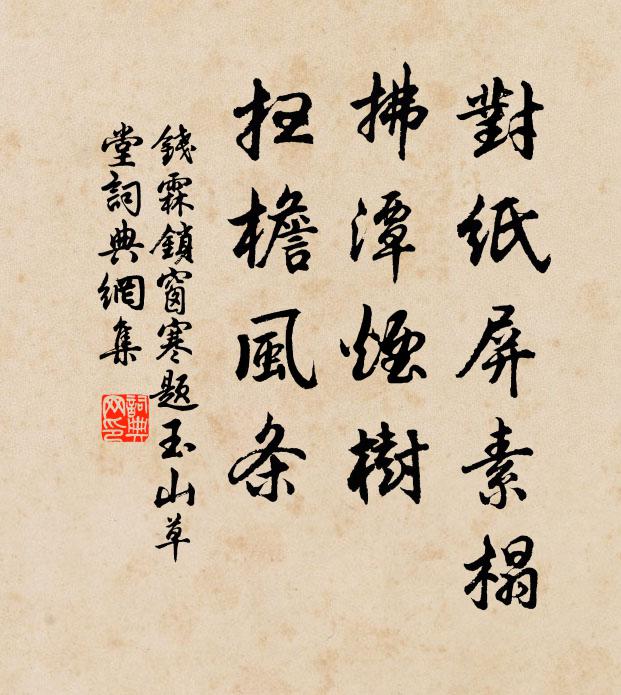 對紙屏素榻
拂潭煙樹
扫檐風条
錢霖鎖窗寒題玉山草
堂詞典網集
詞典网印